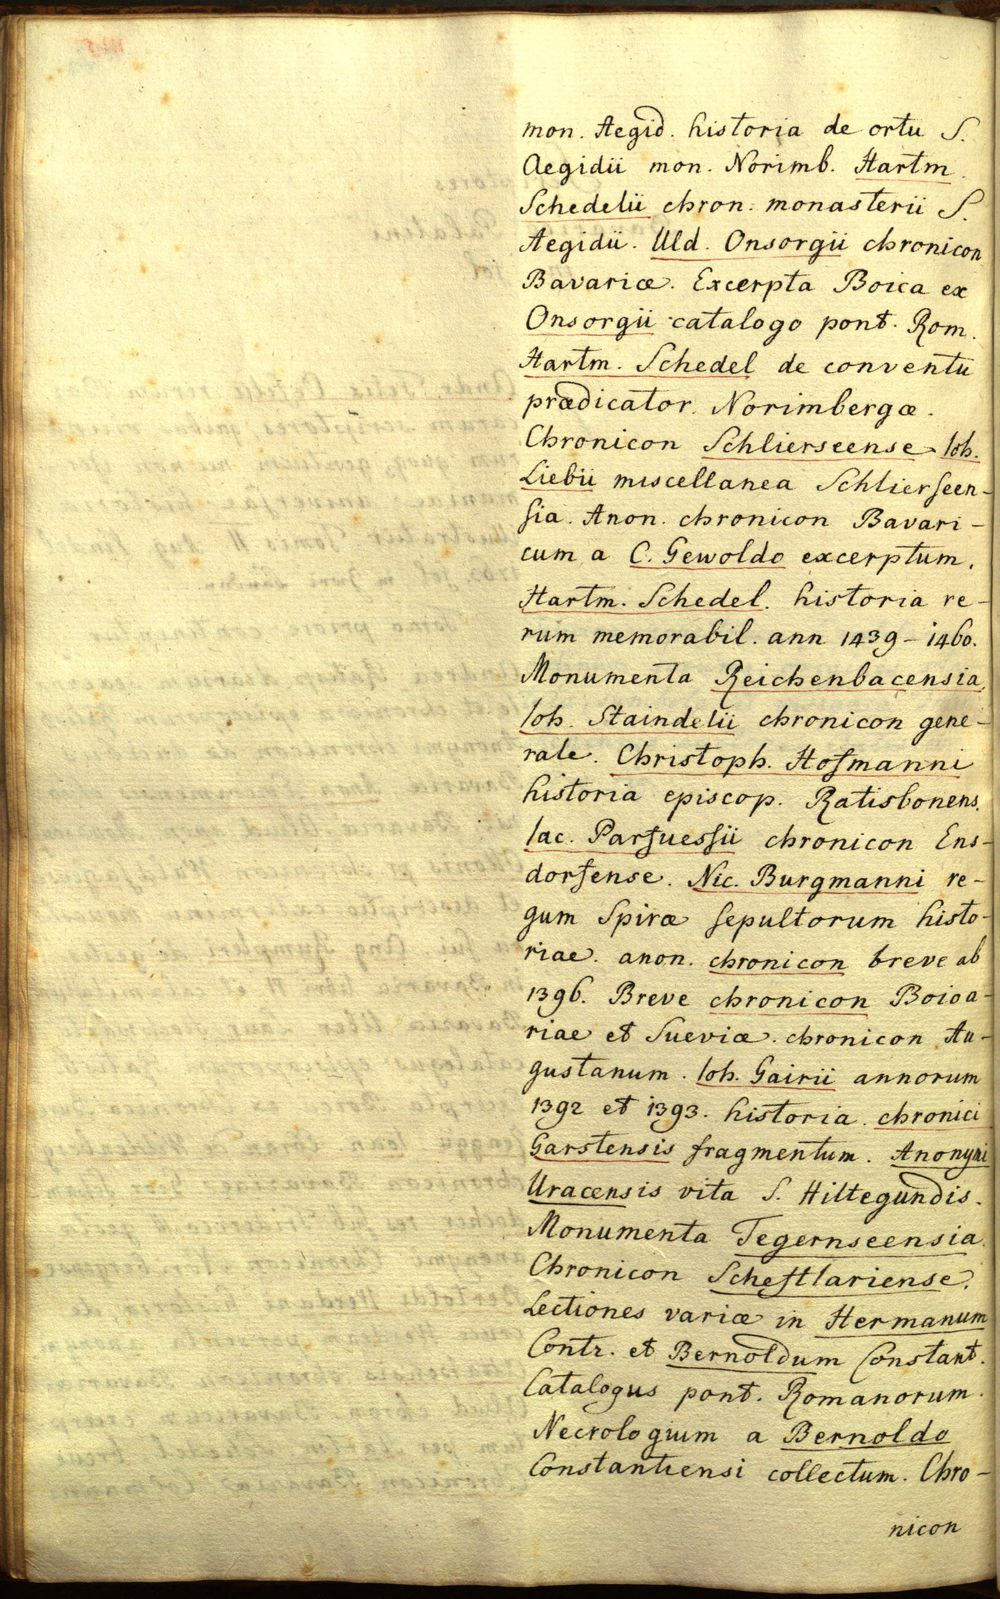 mon. Aegid. historia de ortu S.
Aegidii mon. Norimb. Hartm.
Schedelii chron. monasterii S.
Aegidii. Uld. Onsorgii chronicon
Bavariæ. Excerpta Boica ex
Onsorgii catalogo pont. Rom.
Hartm. Schedel de conventu
prædicator. Norimbergæ.
Chronicon Schlierseense. Ioh.
Liebii miscellanea Schlierseen-
sia. Anon. chronicon Bavari-
cum a C. Gewoldo excerptum.
Hartm. Schedel. historia re-
rum memorabil. ann 1439-1460.
Monumenta Reichenbacensia.
Ioh. Staindelii chronicon gene-
rale. Christoph. Hofmanni
historia episcop. Ratisbonens.
Iac. Parfuessii chronicon Ens-
dorfense. Nic. Burgmanni re-
gum Spiræ sepultorum histo-
riae. anon. chronicon breve ab
1396. Breve chronicon Boioa-
riae et Sueviæ. chronicon Au-
gustanum. Ioh. Gairii annorum
1392 et 1393. historia. chronici
Garstensis fragmentum. Anonymi
Uracensis vita S. Hiltegundis.
Monumenta Tegernseensia.
Chronicon Scheftlariense.
Lectiones variæ in Hermanum
Contr. et Bernoldum Constant.
Catalogus pont. Romanorum.
Necrologium a Bernoldo
Constantiensi collectum. Chro-
nicon